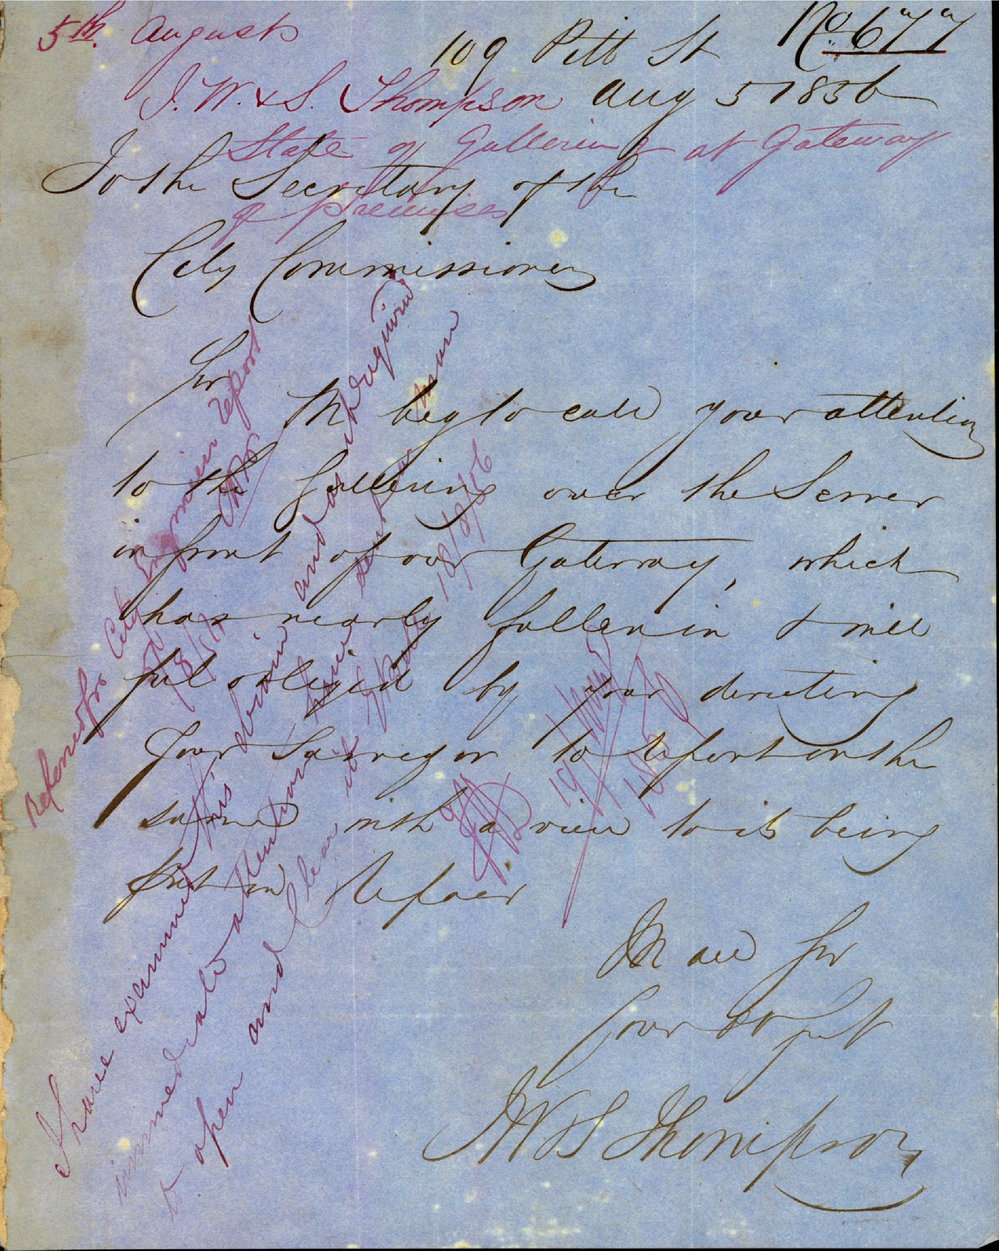 No 677
5th August
109 Pitt St
J. W. & S. Thompson Aug 5 1856
State of Guttering at Gateway
To the Secretary of the
of premises
City Commissioners
Sir
We beg to call your attention
to the guttering over the Sewer
in front of our Gateway, which
has nearly fallen in & will
feel obliged by your directing
your Surveyor to report on the
same with a view to its being
put in repair
We are Sir
Your Ob St
JW&S Thompson
Referred for City Engineers report
I have examined this drain and as it requires
immediate attention
to open and clean it
18/8/56